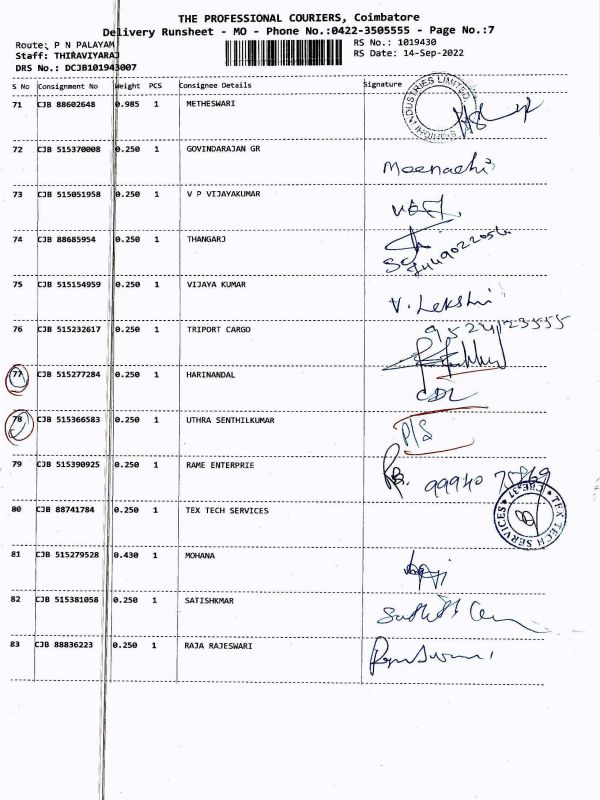 THE PROFESSIONAL COURIERS, Coimbatore
Delivery Runsheet - MO - Phone No.:0422-3505555 - Page No.:7
Route: P N PALAYAM
RS No.: 1019430
Staff: THIRAVIYARAJ
RS Date: 14-Sep-2022
DRS No.: DCJB101943007
S No Consignment No Weight PCS Consignee Details Signature
71 CJB 88602648 0.985 1 METHESWARI
INDUSTRIES LIMITED
72 CJB 515370008 0.250 1 GOVINDARAJAN GR
Meenachi
73 CJB 515051958 0.250 1 V P VIJAYAKUMAR
74 CJB 88685954 0.250 1 THANGARJ
75 CJB 515154959 0.250 1 VIJAYA KUMAR
V. Lekshi
76 CJB 515232617 0.250 1 TRIPORT CARGO
77 CJB 515277284 0.250 1 HARINANDAL
78 CJB 515366583 0.250 1 UTHRA SENTHILKUMAR
P/S
79 CJB 515390925 0.250 1 RAME ENTERPRIE
80 CJB 88741784 0.250 1 TEX TECH SERVICES
TEX TECH SERVICES
81 CJB 515279528 0.430 1 MOHANA
82 CJB 515381058 0.250 1 SATISHKMAR
83 CJB 88836223 0.250 1 RAJA RAJESWARI